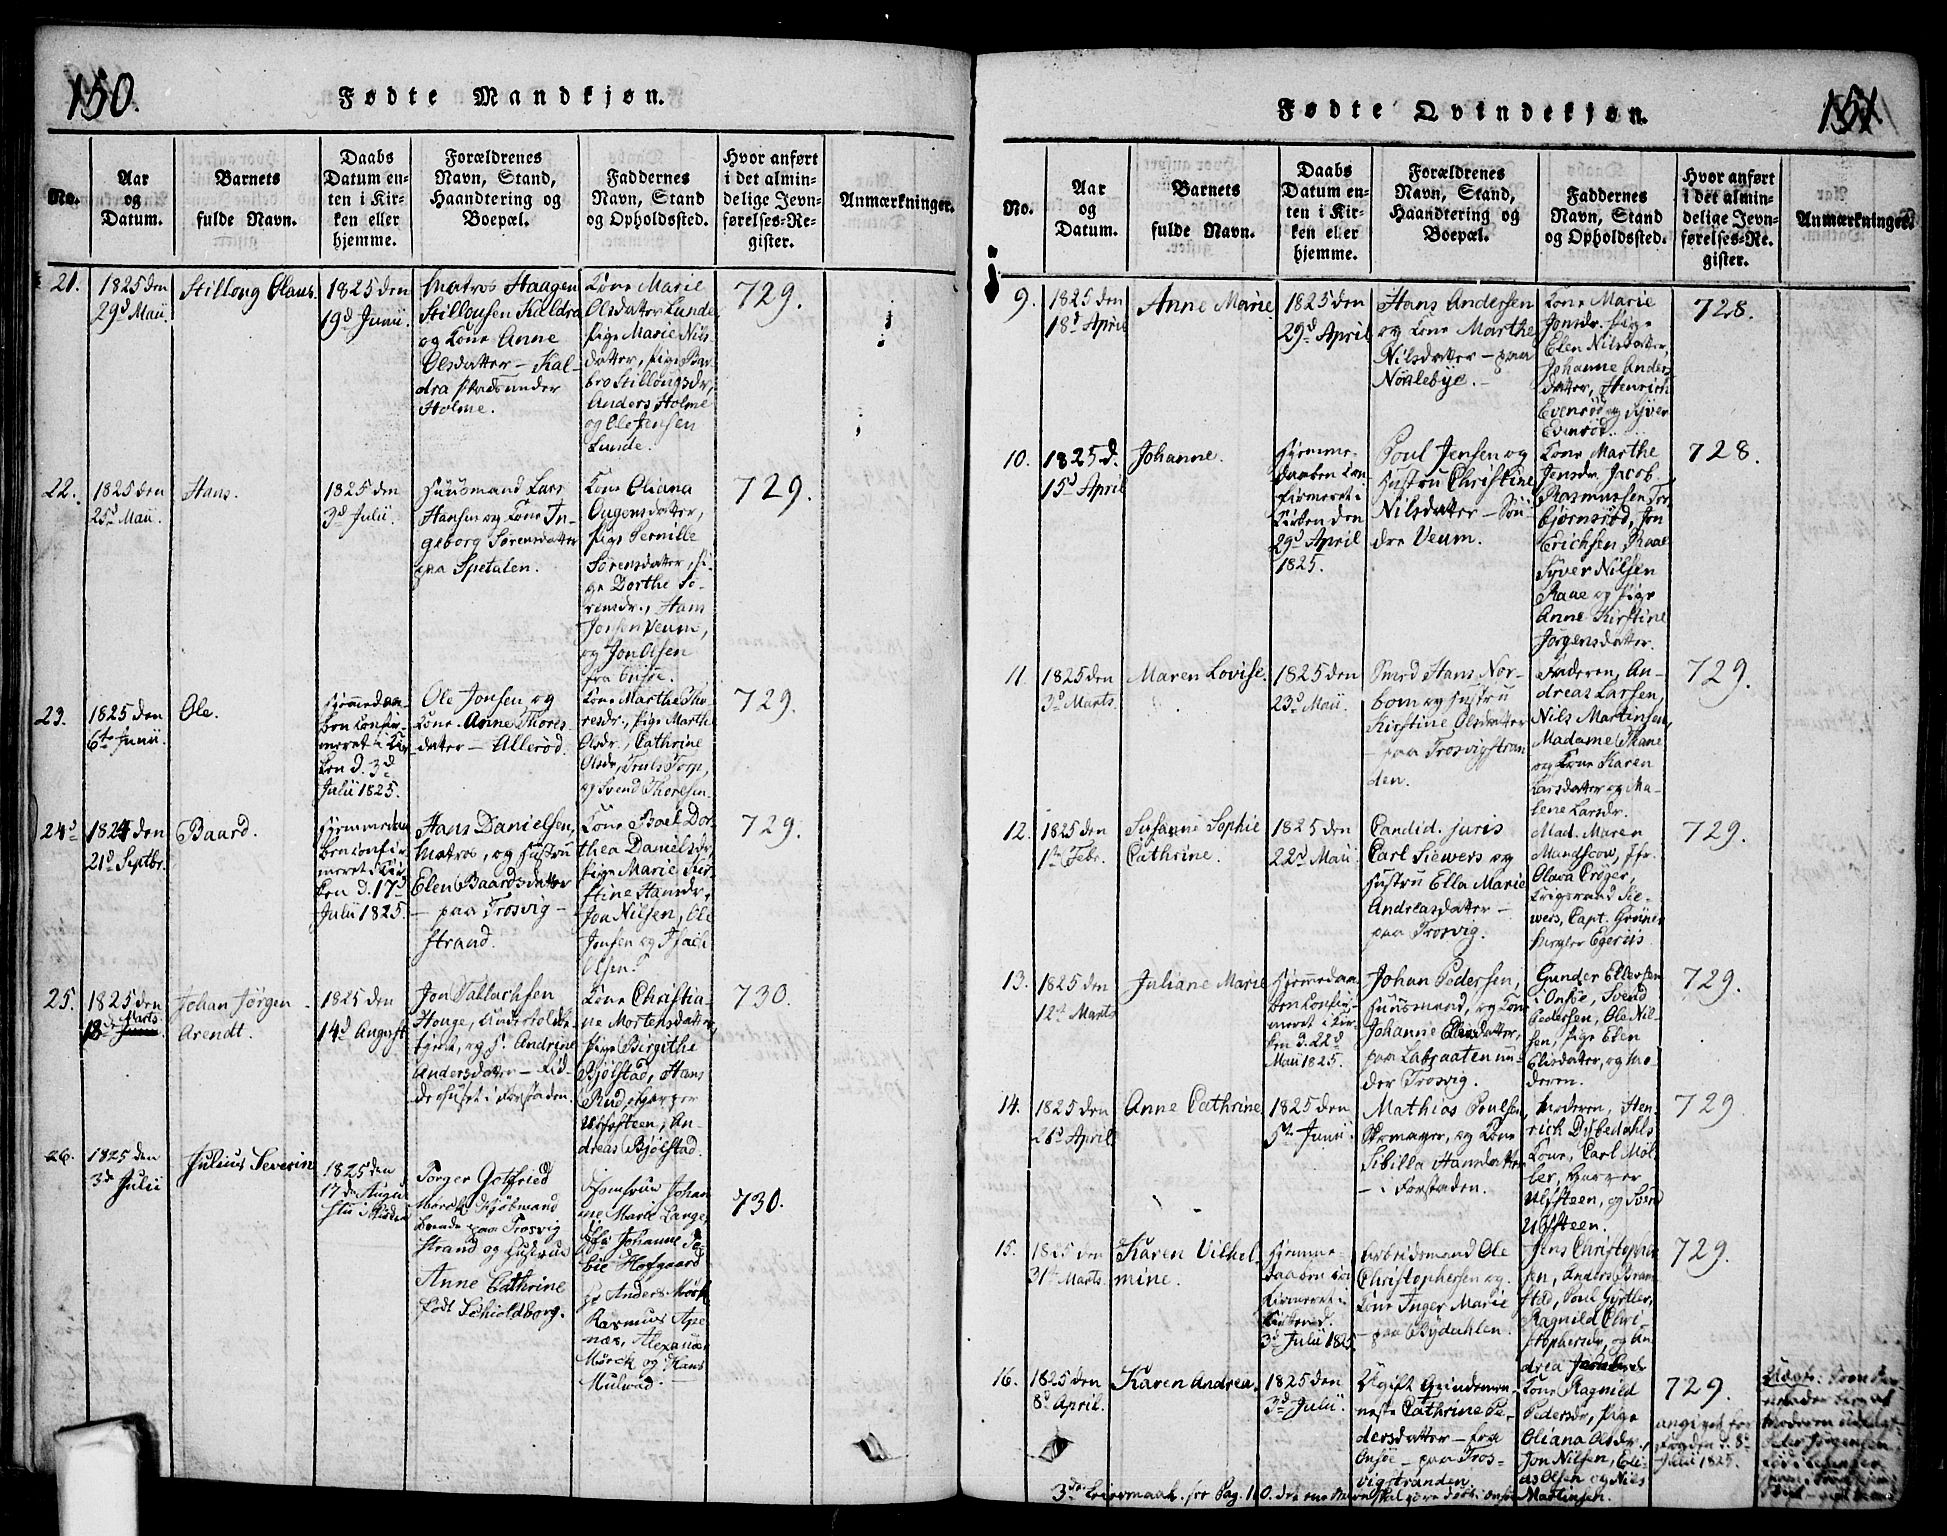 150.
Fødte Mandkjøn.
No.
Aar
og
Datum.
Barnets
fulde Navn.
Daabs
Datum en-
ten i Kir-
ken eller
hjemme.
Forældrenes
Navn, Stand,
Haandtering og
Boepæl.
Faddernes
Navn, Stand
og Opholdssted.
Hvor anført
i det almin-
delige Jevn-
førelses-Re-
gister.
Anmærkninger.
21.
1825 den
29d Maii.
Stillong Olaus.
1825 den
19d Junii.
Matros Haagen
Stillousen Kaldra
og Kone Anne
Olsdatter – Kal-
dra Plads under
Holme.
Kone Marie
Olsdatter Lunde,
Pige Marie Nils-
datter, Pige Bar-
bro Stillongsdr,
Anders Holme
og Ole Jensen
Lunde.
729.
22.
1825 den
25d Maii.
Hans.
1825 den
3d Julii.
Huusmand Lars
Hansen og Kone In-
geborg Sørensdatter
paa Spetalen.
Kone Oliana
Augensdatter,
Pige Pernille
Sørensdatter, Pi-
ge Dorthe Sø-
rensdr., Hans
Jensen Veum,
og Jon Olsen
fra Onsøe.
729.
23.
1825 den
6te Junii.
Ole.
Hjemmedaa-
ben Confir-
meret i Kir-
ken d. 3d
Julii 1825.
Ole Jonsen og
Kone Anne Thores-
datter – Allerød.
Kone Marthe Tho-
resdr., Pige Marthe
Olsdr., Cathrine
Olsdr, Truls Torp,
og Svend Thoresen.
729.
24d
1824 den
21d Septbr.
Baard.
Hjemmedaa-
ben confir-
meret i Kir-
ken d. 17d
Julii 1825.
Hans Danielsen,
Matros, og Hustru
Elen Baardsdatter
– paa Trosvig-
strand.
Kone Boel Dor-
thea Danielsdr,
Pige Marie Kir-
stine Hansdr,
Jon Nilsen, Ole
Jensen og
Olsen.
729.
25.
1825 den
Marts
18de Junii
Johan Jørgen
Arendt.
1825 den
14d August
Jon Tallachsen
Houge,
og H. Andrine
Andersdatter –
i Forstaden.
Kone Christia-
ne Mortensdatter,
Pige Birgithe
Bjølstad, Hans
Rud,
Ulfsteen, An-
dreas Bjølstad.
730.
26.
1825 den
3d Julii
Julius Severin
1825 den
17de Augu-
sti i Kirken
Torger Gotfried
Mørch Kjøbmand
boende paa Trosvig
Strand og Hustrue
Anne Cathrine
født Schioldborg.
Jomfrue Johan-
ne Marie Lange,
Johanne So-
phie Hofgaard
Anders Mørch
Rasmus Ape-
næs, Alexander
Mørch og Hans
Mulvad.
730.
151
Fødte Qvindekjøn.
No.
Aar
og
Datum.
Barnets
fulde Navn.
Daabs
Datum en-
ten i Kir-
ken eller
hjemme.
Forældrenes
Navn, Stand,
Haandtering og
Boepæl.
Faddernes
Navn, Stand
og Opholdssted.
Hvor anført
i det almin-
delige Jevn-
førelses-Re-
gister.
Anmærkninger.
9.
1825 den
18d April
Anne Marie
1825 den
29d April
Hans Andersen
og Kone Marthe
Nilsdatter – paa
Nørlebye. –
Kone Marie
Jonsdr. Pige
Elen Nilsdatter,
Johanne Anders-
datter, Henrich
Evenrød og Syver
Evenrød.
728.
10.
1825 d.
15d April
Johanne.
Hjemme-
daaben Con-
firmeret i
Kirken den
29d April
1825.
Poul Jensen og
Hustru Christine
Nilsdatter – Søn-
dre Veum.
Kone Marthe
Jensdr. Jacob
Rasmussen Tor-
bjørnsrød, Jon
Erichsen, Raae
Syver Nilsen
Raae og Pige
Anne Kirstine
Jørgensdatter.
728.
11.
1825 den
3d Marts.
Maren Lovise.
1825 den
23d Maii.
Smed Hans Nor-
bom og Hustru
Kirstine Olsdatter
– paa Trosvigstran-
den.
Faderen, An-
dreas Larsen,
Nils Martinsen,
Madame Thane
og Kone Karen
Larsdatter og Ma-
lene Larsdr.
729.
12.
1825 den
1te Febr.
Susanne Sophie
Cathrine.
1825 den
22d Maii
Candid. juris
Carl Siewers og
Hustru Ella Marie
Andreasdatter –
paa Trosvig.
Mad. Maren
Mandscow, Jfr.
Olava Crøger,
Krigsraad Sie-
wers, Capt. Grøner
Egeriis.
729.
13.
1825 den
12te Marts
Juliane Marie
Hjemmedaa-
ben Confir-
meret i Kir-
ken d. 22d
Maii 1825.
Johan Pedersen,
Huusmand, og Kone
Johanne Olesdatter,
paa Labraaten un-
der Trosvig.
Gunder Ellersen
i Onsøe, Svend
Pedersen, Ole Nil-
sen, Pige Elen
Elisdatter, og Mo-
deren.
729.
14.
1825 den
26d April
Anne Cathrine
1825 den
5te Junii
Mathias Poulsen
Skomager, og Kone
Sibilla Hansdatter
– i Forstaden.
Moderen, Hen-
rich Disbedahls
Kone, Carl Møl-
ler,
Ulfsteen, og Svend
Ulfsteen.
729
15.
1825 den
31te Marts
Karen Vilhel-
mine.
Hjemme-
daaben Con-
firmeret i
Kirken d.
3d Julii 1825
Arbeidsmand Ole
Christophersen og
Kone Inger Marie
– paa Bydahlen.
Jens Christopher-
sen, Anders Bram-
stad, Poul Gyrtler,
Ragnild Chri-
stophersdr, og An-
drea
729.
16.
1825 den
8d April.
Karen Andrea.
1825 den
3d Julii.
Ugift Qvindemen-
neske Cathrine Pe-
dersdatter – fra
Onsøe – paa Tros-
vigstranden.
Kone Ragnild
Pedersdr, Pige
Oliana Olsdr.,
Jon Nilsen, Eli-
as Olsen og Nils
Martinsen.
729.
angivet for
Fogden d. 8d
Julii 1825.
Uægte:
Moderen udlagt
Peder Jørgensen
3de Leiermaal. see Pag. 110.